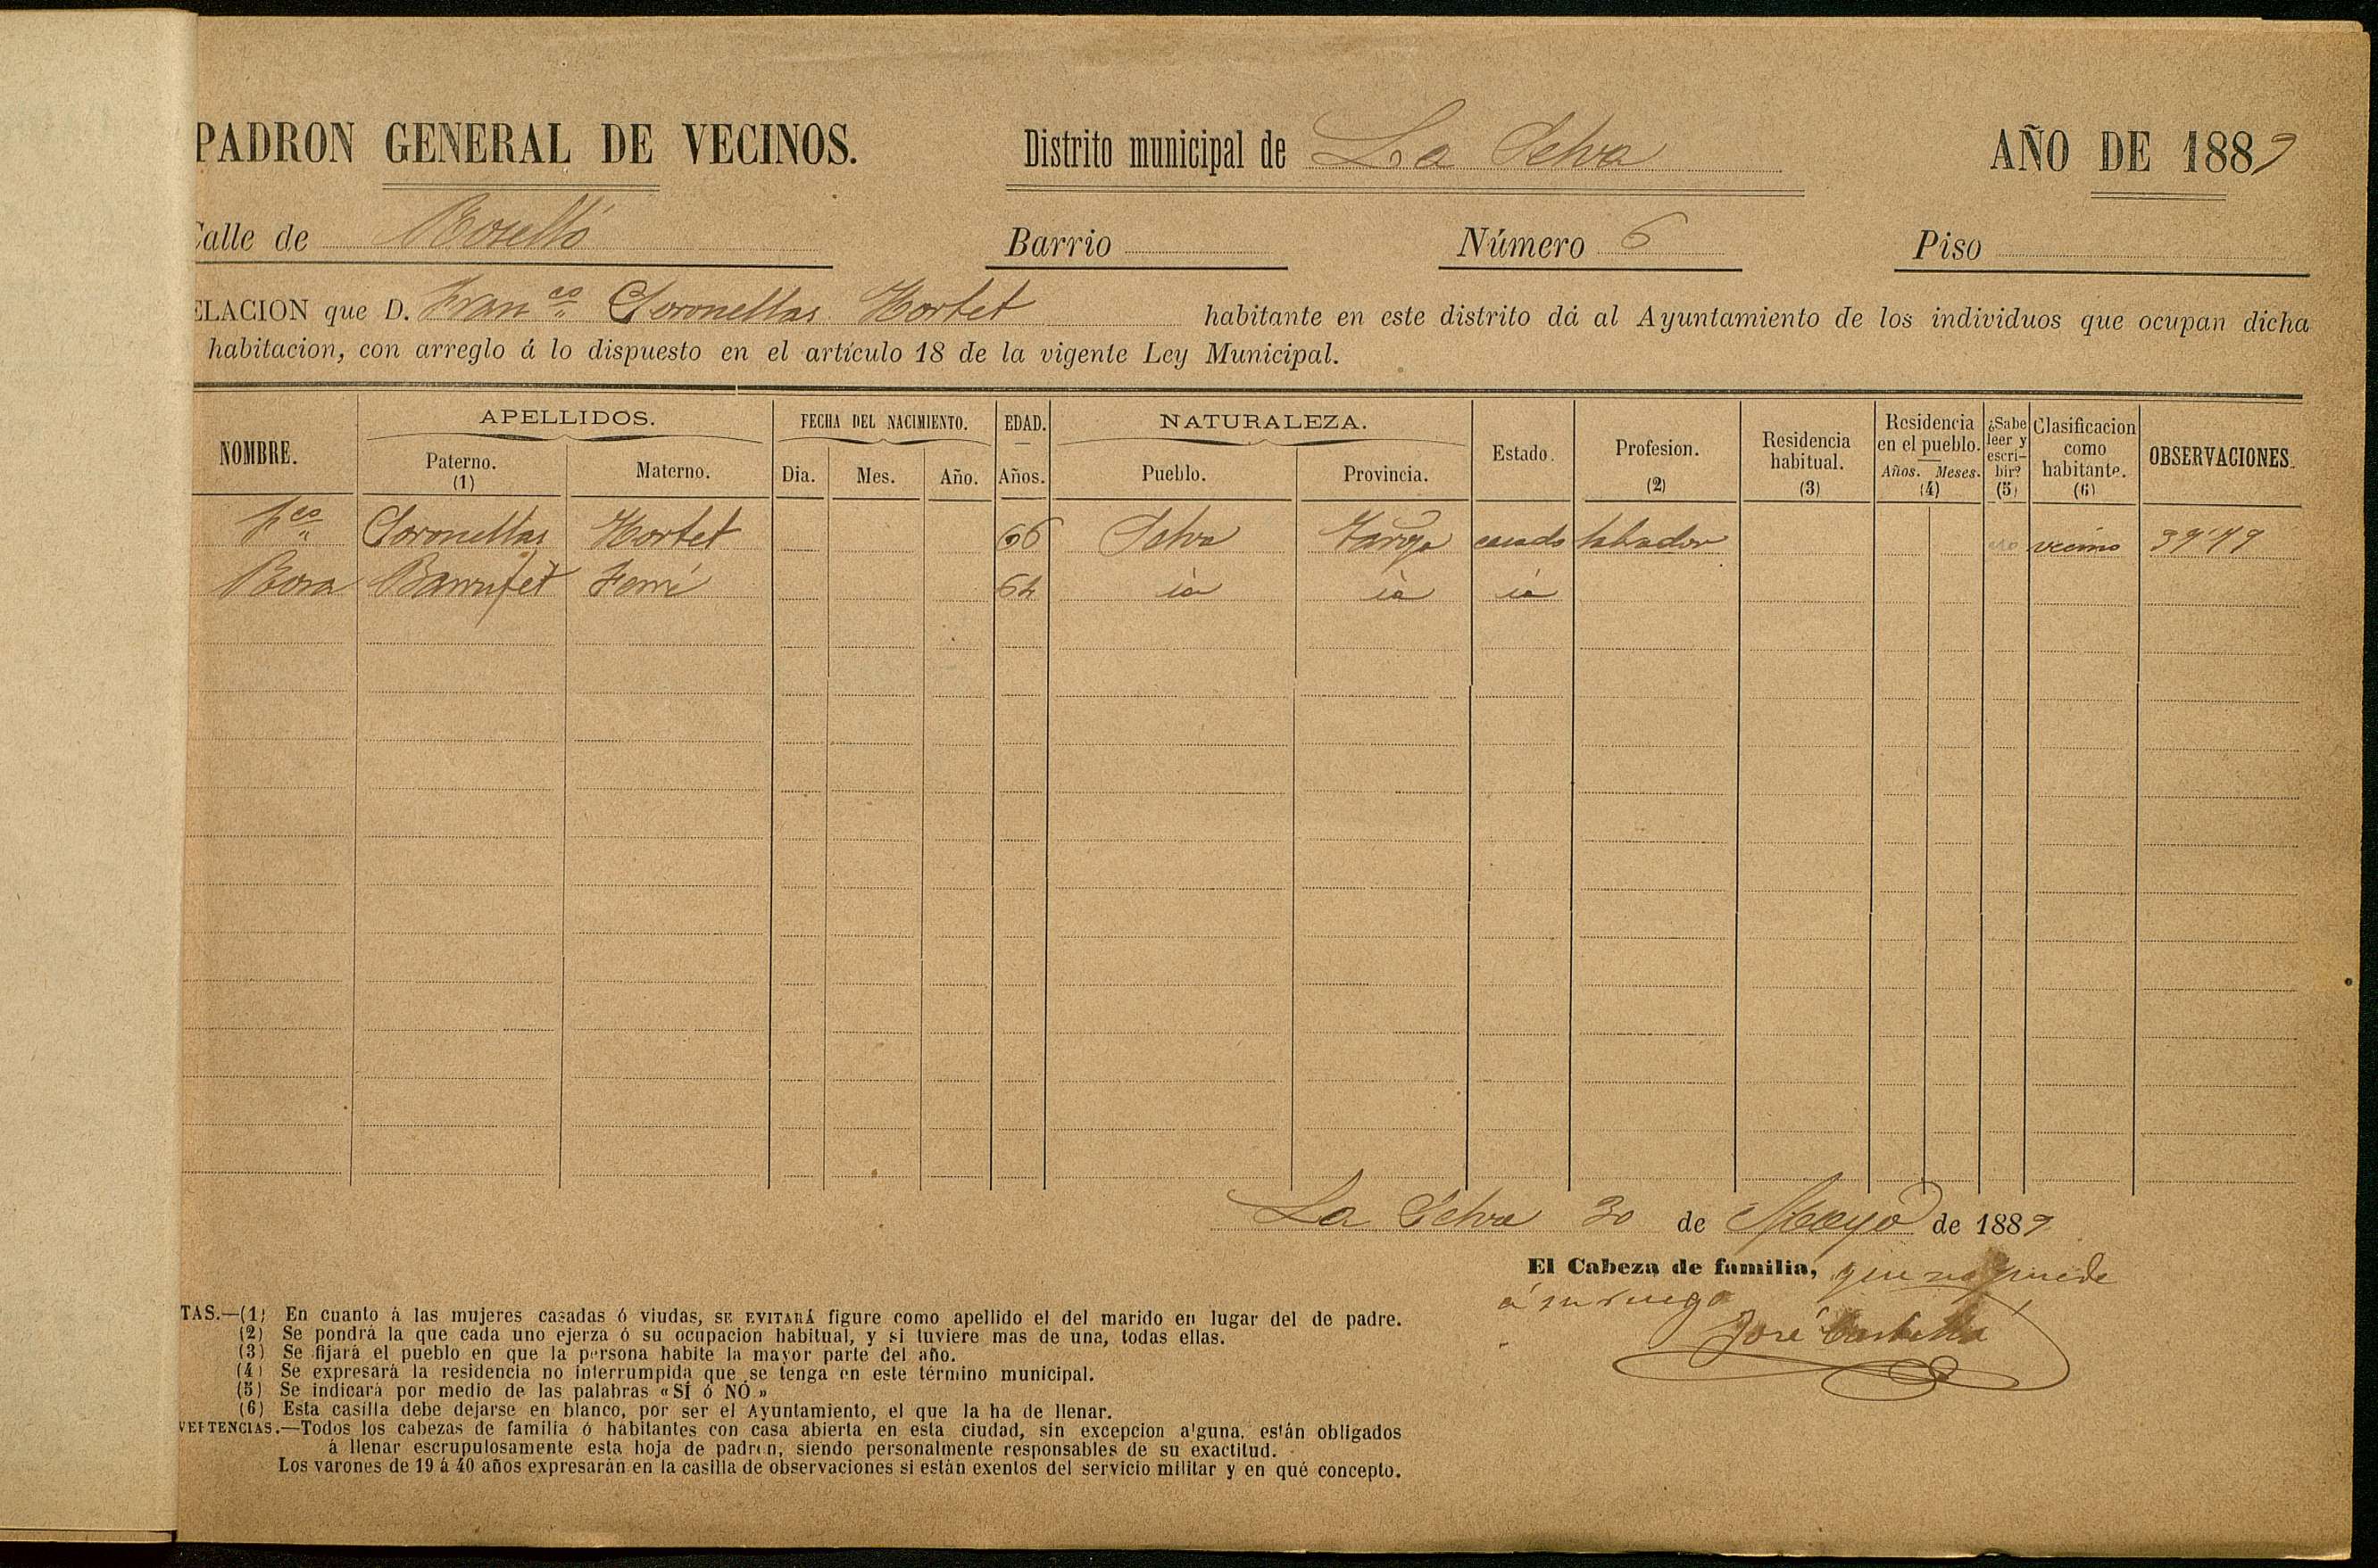 PADRON GENERAL DE VECINOS. Distrito municipal de La Selva AÑO DE 1889
Calle de Roselló Barrio Número 6 Piso
ELACION que D. Fran.co Coronellas Hortet habitante en este distrito dá al Ayuntamiento de los individuos que ocupan dicha
habitacion, con arreglo á lo dispuesto en el artículo 18 de la vigente Ley Municipal.
NOMBRE. APELLIDOS. Paterno. (1) Materno. FECHA DEL NACIMIENTO. Dia. Mes. Año. EDAD. Años. NATURALEZA. Pueblo. Provincia. Estado. Profesion. (2) Residencia habitual. (3) Residencia en el pueblo. Años. Meses. (4) ¿Sabe leer y escribir? (5) Clasificacion como habitante. (6) OBSERVACIONES.
Fco Coronellas Hortet 66 Selva Tarrga casado labrador no vecino
Rosa Barrufet Ferré 64 id id id
La Selva 30 de Mayo de 1889
El Cabeza de familia, que no puede
á su ruego
José
TAS.—(1) En cuanto á las mujeres casadas ó viudas, SE EVITARÁ figure como apellido el del marido en lugar del de padre.
(2) Se pondrá la que cada uno ejerza ó su ocupacion habitual, y si tuviere mas de una, todas ellas.
(3) Se fijará el pueblo en que la persona habite la mayor parte del año.
(4) Se expresará la residencia no interrumpida que se tenga en este término municipal.
(5) Se indicará por medio de las palabras «SÍ ó NÓ.»
(6) Esta casilla debe dejarse en blanco, por ser el Ayuntamiento, el que la ha de llenar.
VERTENCIAS.—Todos los cabezas de familia ó habitantes con casa abierta en esta ciudad, sin excepcion alguna, están obligados
á llenar escrupulosamente esta hoja de padron, siendo personalmente responsables de su exactitud.
Los varones de 19 á 40 años expresarán en la casilla de observaciones si están exentos del servicio militar y en qué concepto.